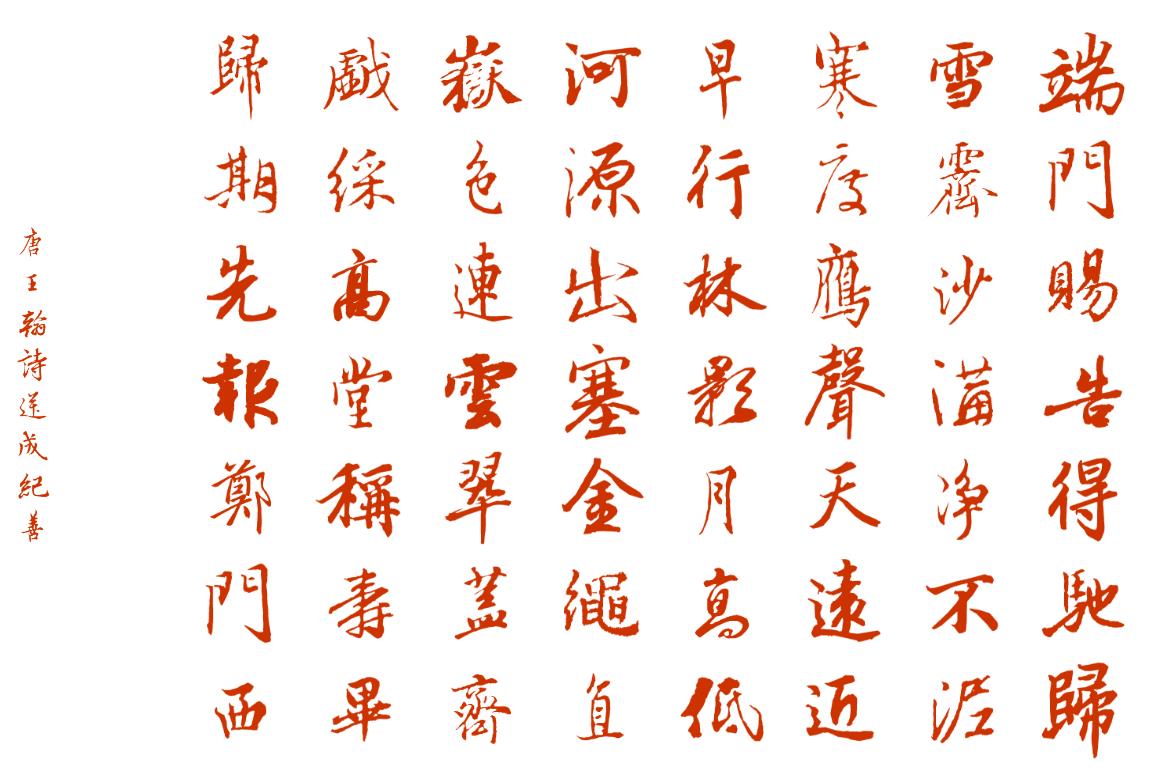 端門賜告得馳歸
雪霽沙溝净不泥
寒度鴈聲天遠近
早行林影月高低
河源出塞金繩直
嶽色連雲翠蓋齊
戲綵高堂稱壽畢
歸期先報鄭門西
唐王翰詩送成紀善